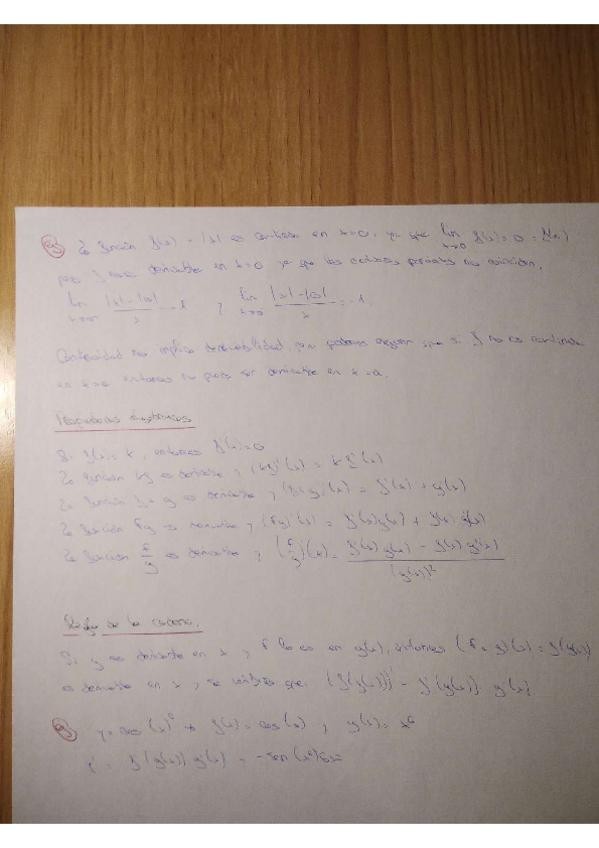 La función f(x) = |x| es continua en x=0, ya que lim x→0 f(x) = 0 = f(0)
pero f no es derivable en x=0 ya que los no coinciden.
lim |x|-|0| / x = 1 y lim x→0 |x|-|0| / x = -1.
Continuidad no implica derivabilidad, pero podemos asegurar que si f no es continua
en x=a entonces no puede ser derivable en x=a.
Si f(x) = k, entonces f'(x)=0
La función kf es derivable y (kf)'(x) = k f'(x)
La función f+g es derivable y (f+g)'(x) = f'(x) + g'(x)
La función f·g es derivable y (f·g)'(x) = f'(x)g(x) + f(x)g'(x)
La función f/g es derivable y (f/g)'(x) = f'(x)g(x) - f(x)g'(x) / (g(x))²
Regla de la cadena.
Si g es derivable en x y f lo es en g(x), entonces (f∘g)(x) = f(g(x))
es derivable en x y se verifica que: (f(g(x)))' = f'(g(x))·g'(x)
y = cos(x)⁶ → f(x) = cos(x), g(x) = x⁶
y' = f'(g(x)) g'(x) = -sen(x⁶)6x⁵